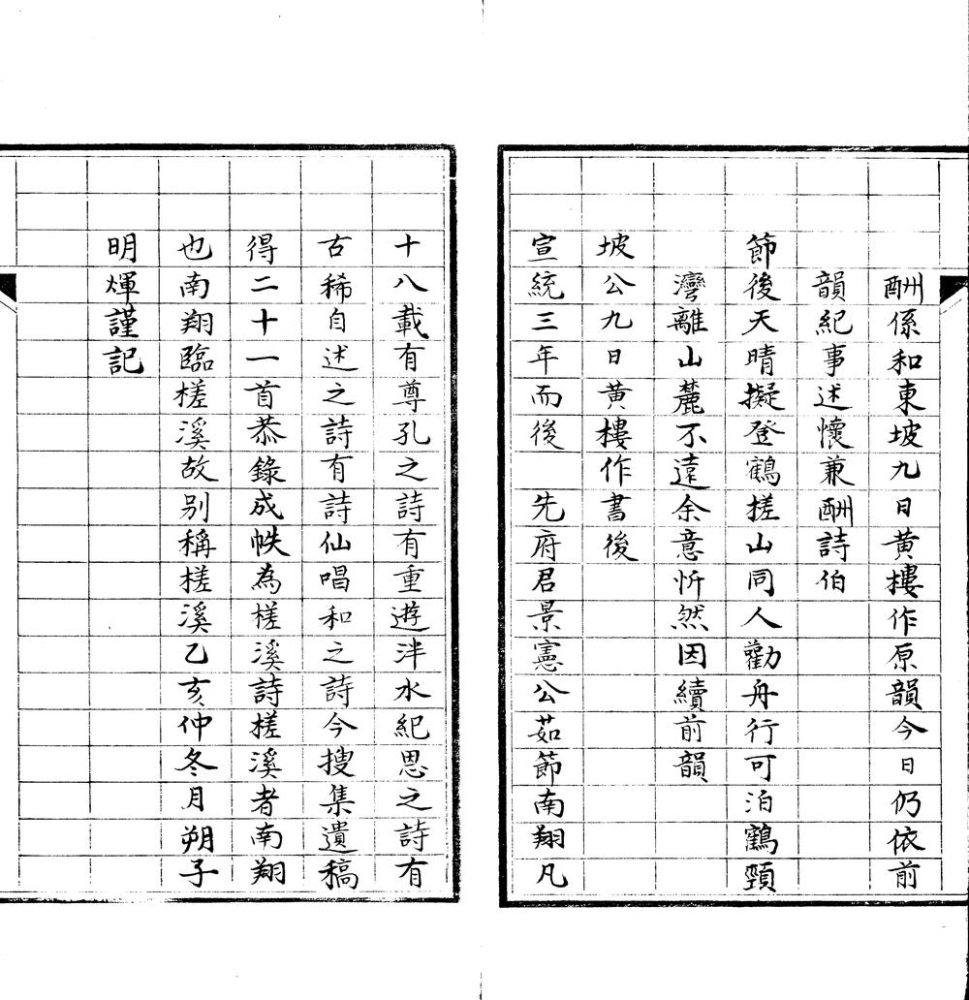 酬係和東坡九日黃樓作原韻今日仍依前
韻紀事述懷兼酬詩伯
節後天晴擬登鶴槎山同人勸舟行可泊鶴頸
灣離山麓不遠余意忻然因續前韻
坡公九日黃樓作書後
宣統三年而後　先府君景憲公茹節南翔凡
十八載有尊孔之詩有重遊泮水紀恩之詩有
古稀自述之詩有詩仙唱和之詩今搜集遺稿
得二十一首恭錄成帙為槎溪詩槎溪者南翔
也南翔臨槎溪故別稱槎溪乙亥仲冬月朔子
明煇謹記